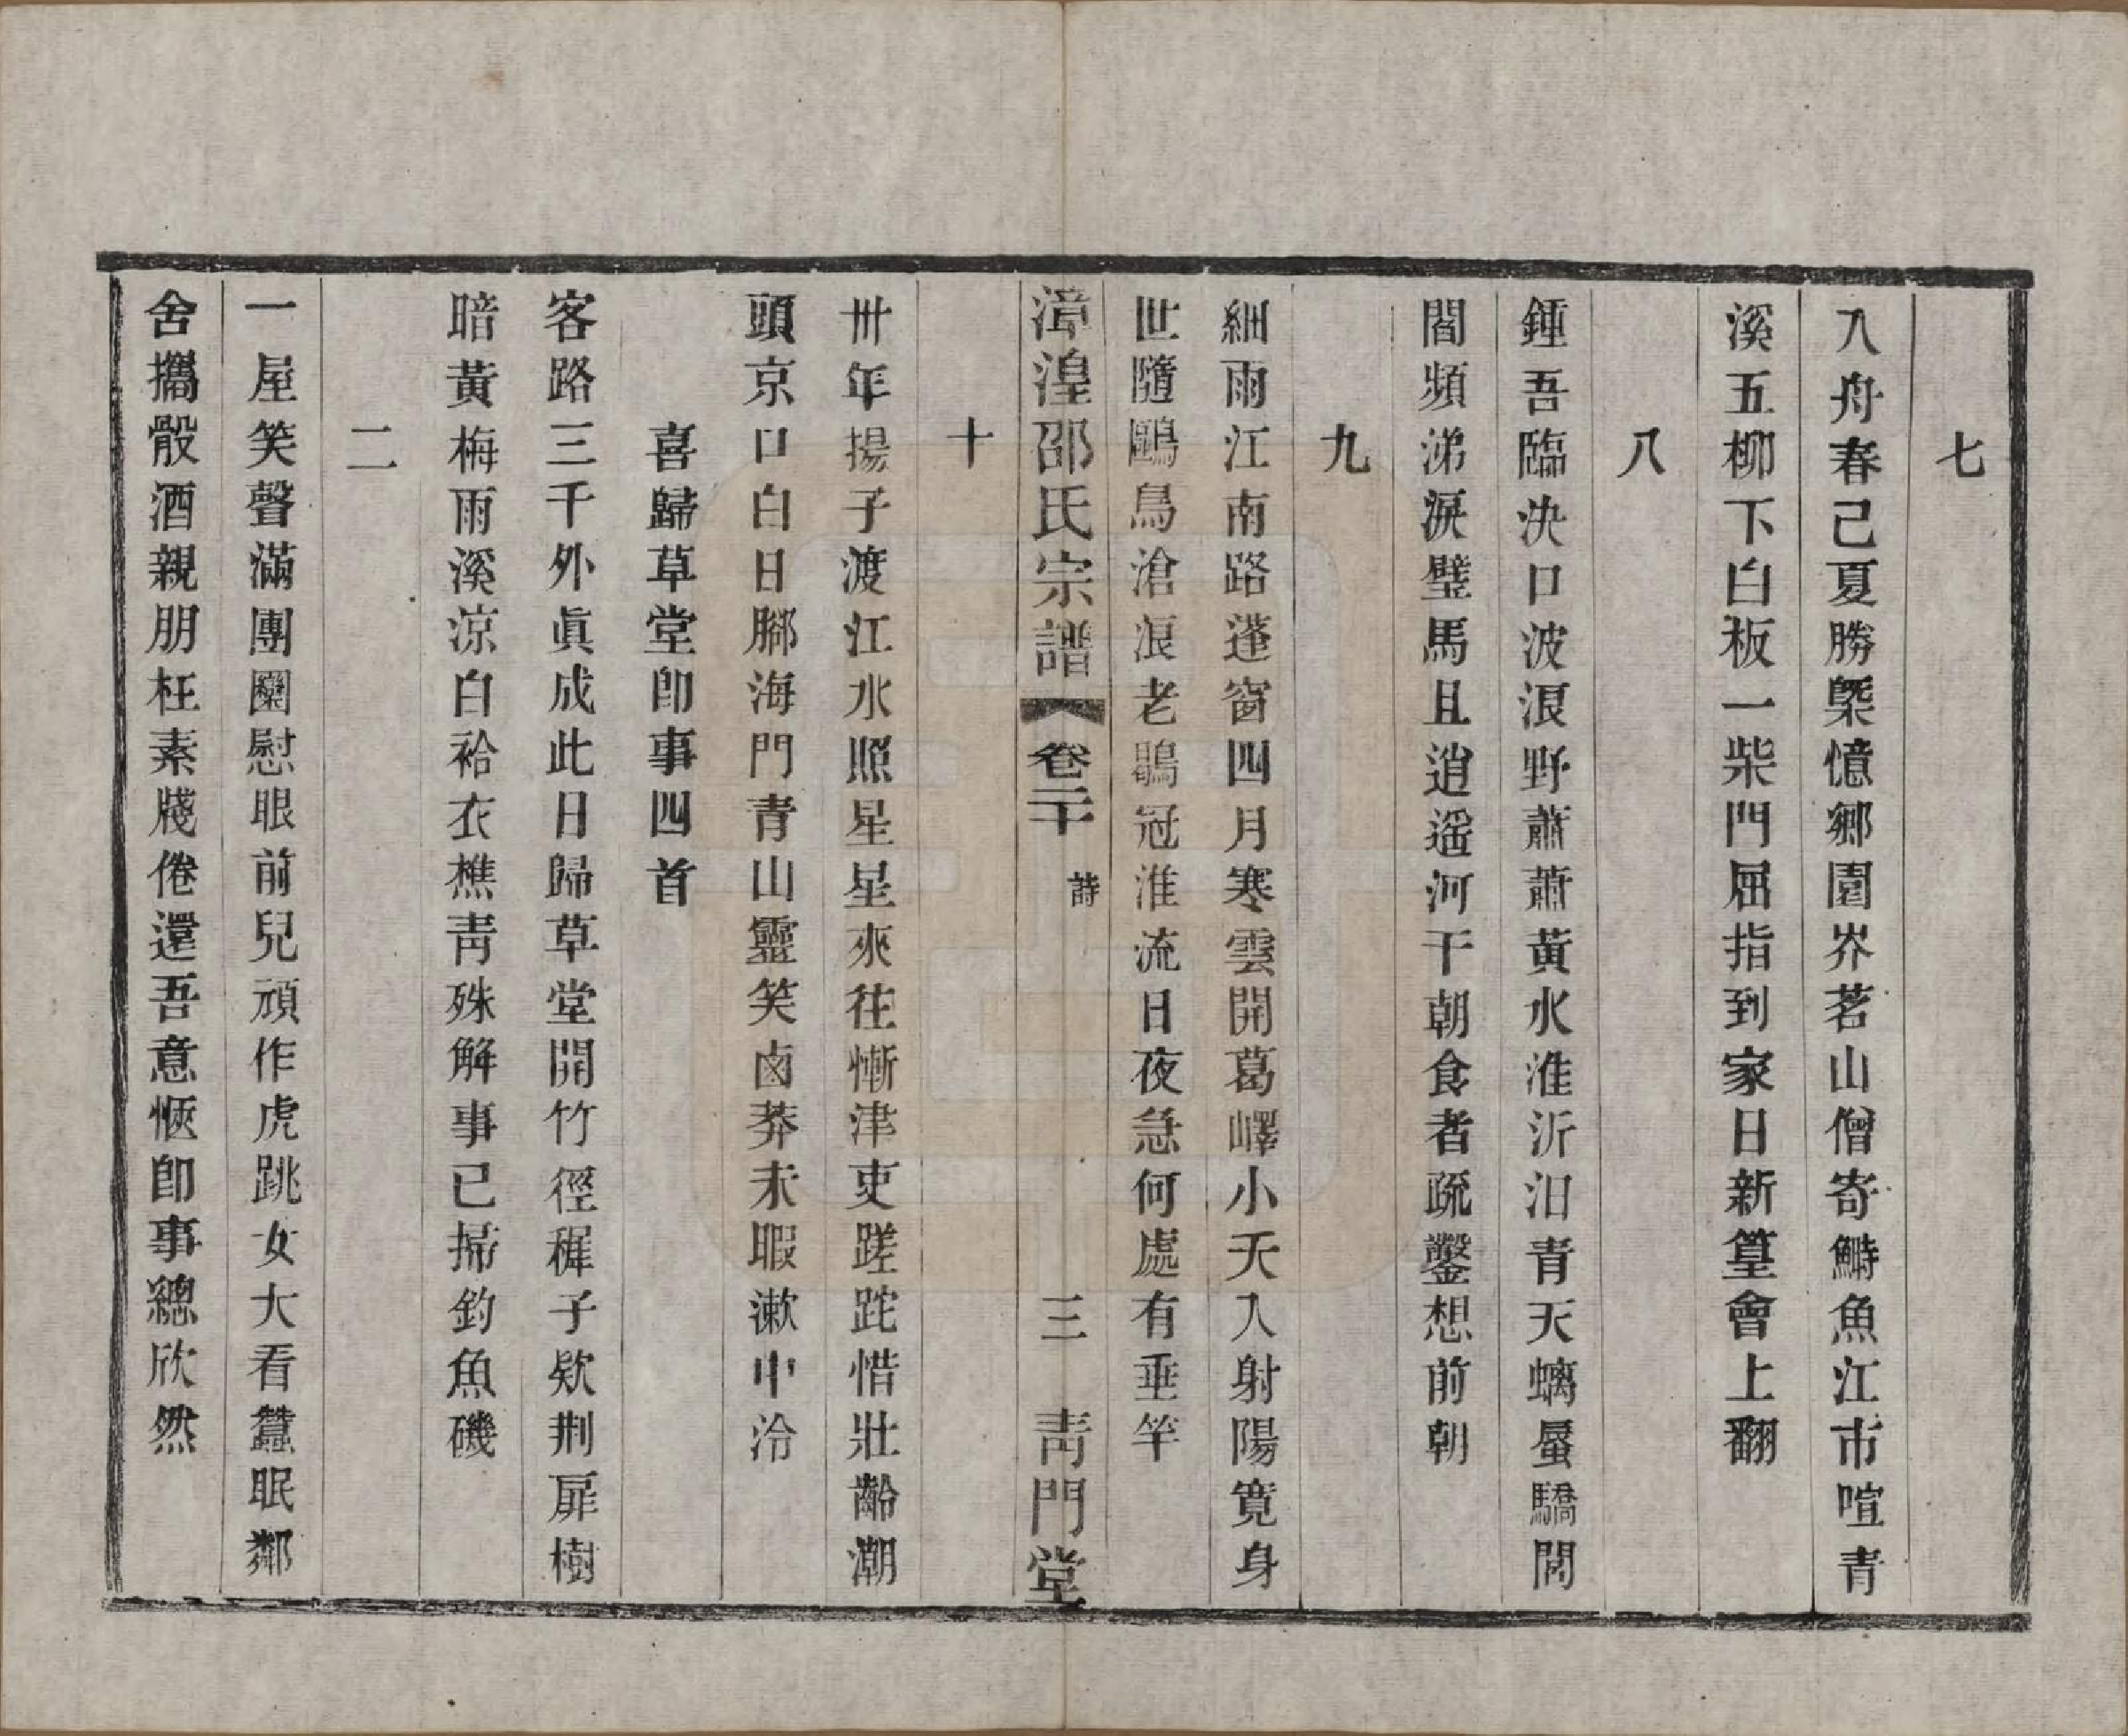 七
入舟春己夏勝槩憶鄉園岕茗山僧寄鰣魚江市喧青
溪五柳下白板一柴門屈指到家日新篁會上翻
八
鍾吾臨決口波浪野蕭蕭黃水淮沂汩青天螭蜃驕閭
閻頻涕淚璧馬且逍遥河干朝食者疏鑿想前朝
九
細雨江南路蓬窗四月寒雲開葛嶧小天入射陽寛身
世隨鷗鳥滄浪老鶡冠淮流日夜急何處有垂竿
漳湟邵氏宗譜 卷二十 詩 三 青門堂
十
卅年揚子渡江水照星星來往慚津吏蹉跎惜壯齡潮
頭京口白日腳海門青山靈笑鹵莽未暇漱中泠
喜歸草堂卽事四首
客路三千外眞成此日歸草堂開竹徑穉子欵荆扉樹
暗黃梅雨溪涼白袷衣樵青殊解事已掃釣魚磯
二
一屋笑聲滿團圞慰眼前兒頑作虎跳女大看蠶眠鄰
舍攜殽酒親朋枉素牋倦還吾意愜卽事總欣然